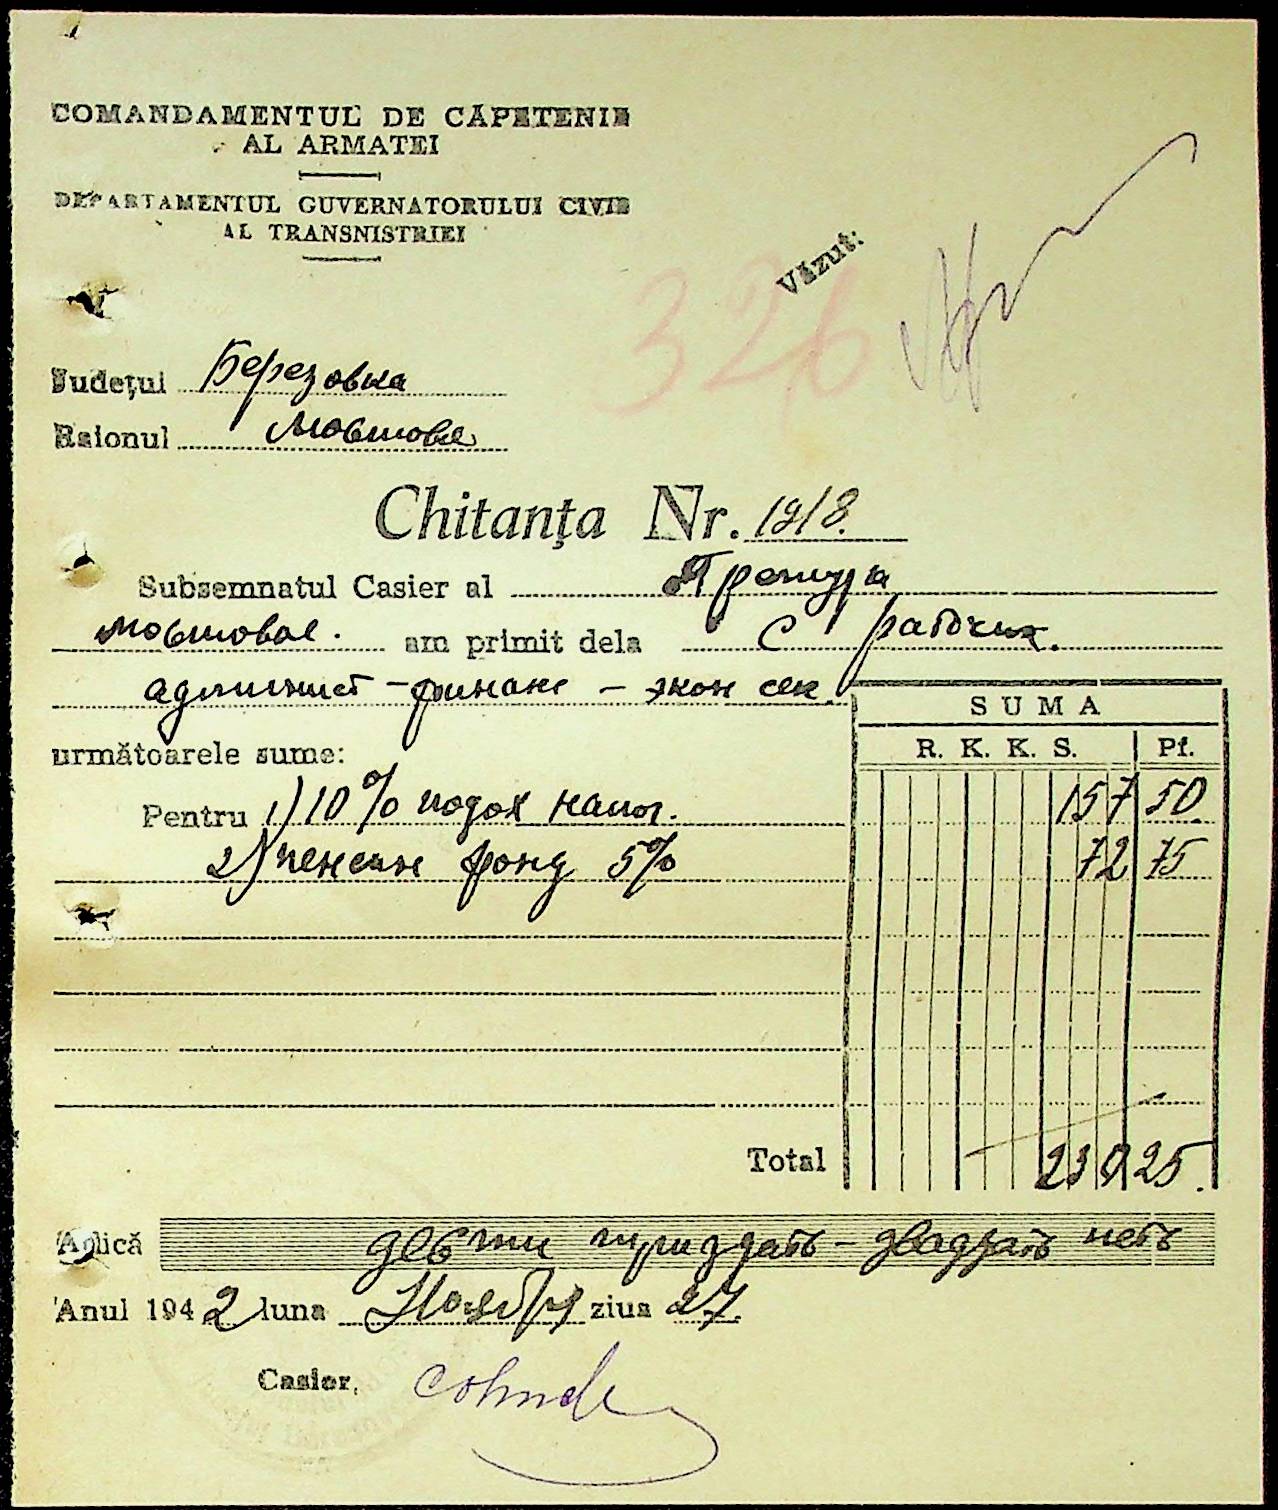 COMANDAMENTUL DE CĂPETENIE
AL ARMATEI
DEPARTAMENTUL GUVERNATORULUI CIVIL
AL TRANSNISTRIEI
Văzut:
326
Județul Березовка
Raionul Мостовое
Chitanța Nr. 1218.
Subsemnatul Casier al Претура
мостовое. am primit dela С рабочих.
админист - финанс - экон сек.
SUMA
următoarele sume:
R. K. K. S. Pf.
Pentru 1) 10% подох налог. 157 50
2) пенсин фонд 5% 72 75
Total 230 25.
Adică двести триздать - двадзать петь
Anul 1942 luna Ноября ziua 27.
Casier,